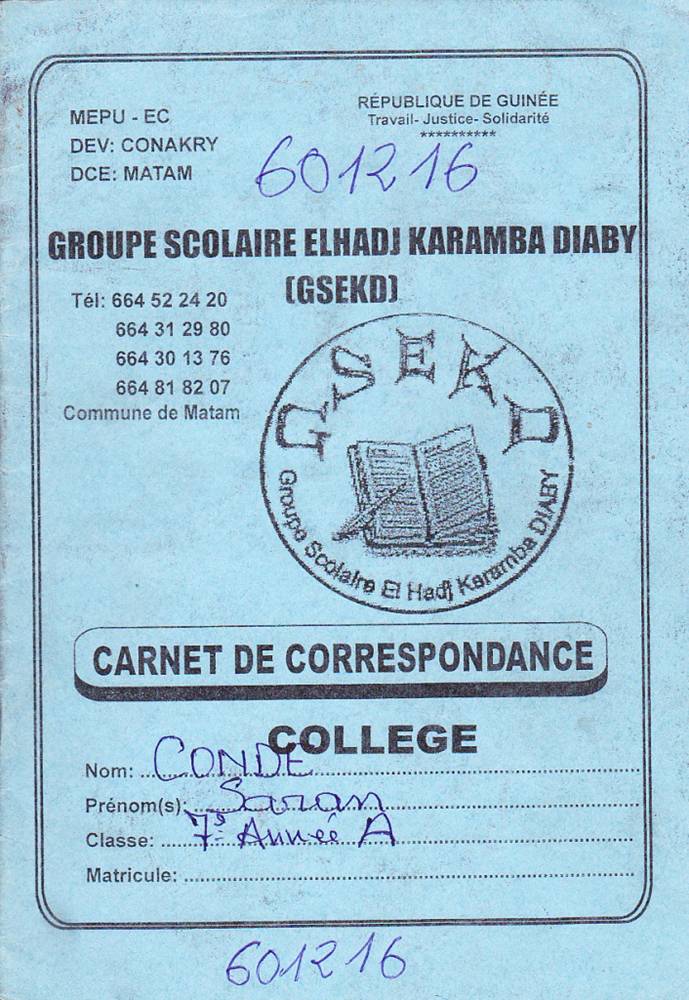 MEPU - EC
DEV: CONAKRY
DCE: MATAM
RÉPUBLIQUE DE GUINÉE
Travail- Justice- Solidarité
**********
601216
GROUPE SCOLAIRE ELHADJ KARAMBA DIABY
(GSEKD)
Tél: 664 52 24 20
664 31 29 80
664 30 13 76
664 81 82 07
Commune de Matam
GSEKD
Groupe Scolaire El Hadj Karamba DIABY
CARNET DE CORRESPONDANCE
COLLEGE
Nom: CONDE
Prénom(s): Saran
Classe: 7e Année A
Matricule:
601216